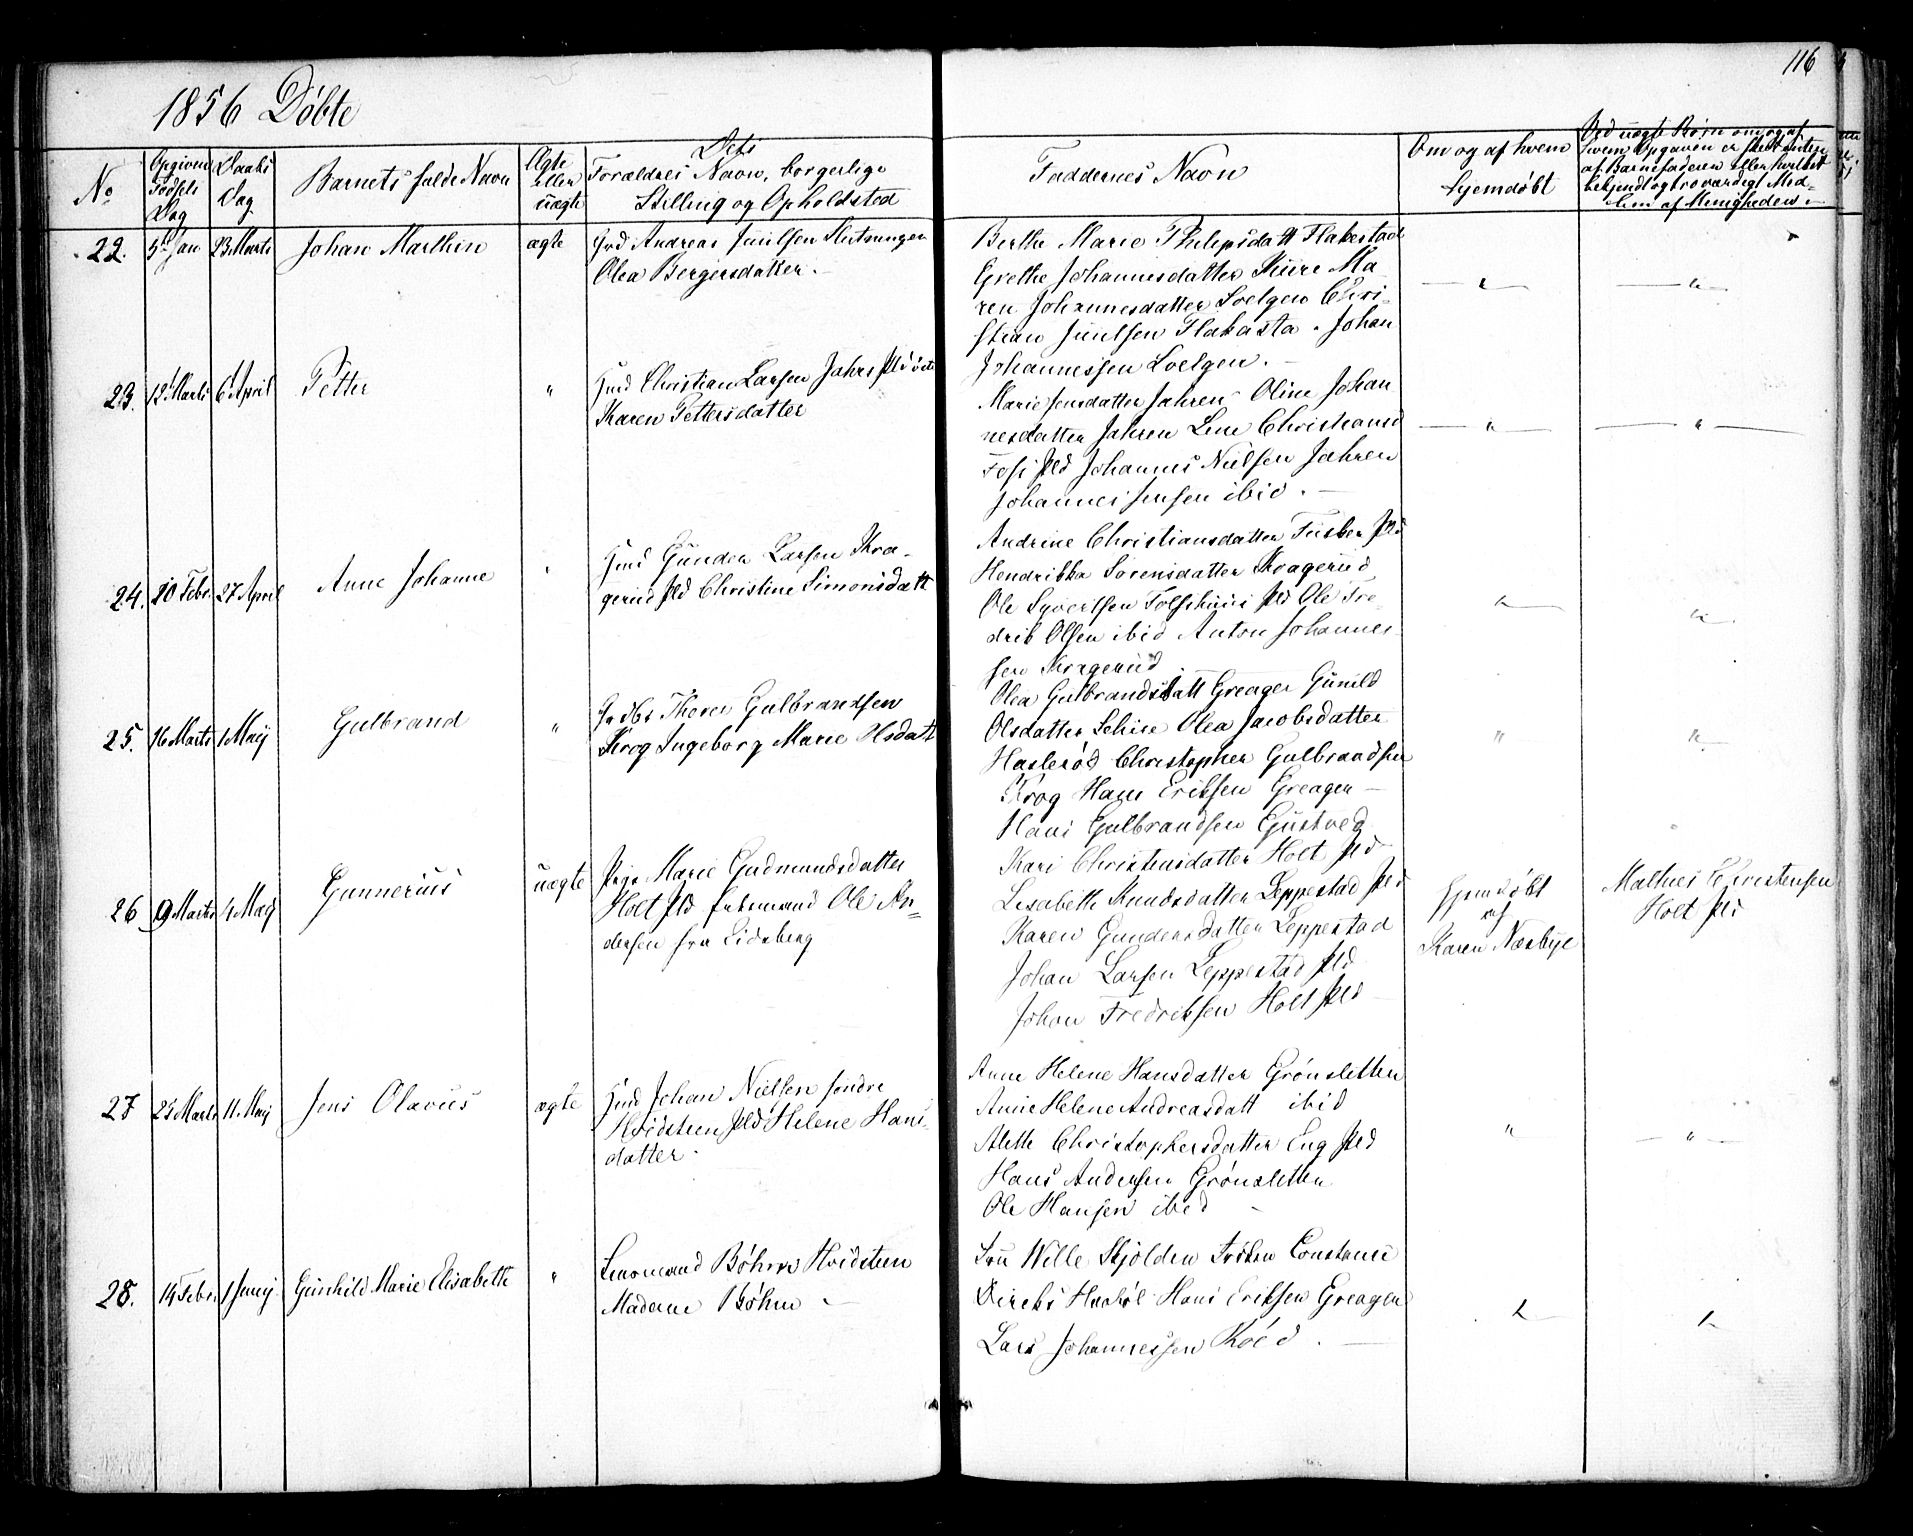 116
1856 Döbte
No
Opgiven Födsels Dag
Daabs Dag
Barnets fulde Navn
Ægte eller uægte
Dets
Forældres Navn, borgerlige
Stilling og Opholdsted
Faddernes Navn
Om og af hvem
hjemdöbt
Ved uægte Börn om og af
hvem Opgaven er
af Barnefaderen eller hvilket
bekjendt og troværdigt Med-
lem af Menigheden
22. 5te Jan 23 Marts Johan Marthin ægte Andreas Juulsen Slitsungen
Olea Bergersdatter.
Berthe Marie Philipsdatt Flakestad
Grethe Johannesdatter Skure Ma-
ren Johannesdatter Soelgen Chri-
stian Juulsen Flakasta. Johan
Johannessen Soelgen.
23. 12 Marts 6 April Petter " Huusmd Christian Larsen Jahrs Pld
Karen Pettersdatter
Marie Jensdatter Jahren Oline Johan
nesdatter Jahren Lene Christiansd
Pld Johannes Nielsen Jahren
Johannes Jensen ibid.
24. 20 Febr. 27 April Anne Johanne " Huusmd Gunder Larsen Kra-
gerud Pld Christine Simonsdatt
Andrine Christiansdatter Pld
Hendrikka Sorensdatter Kragerud
Ole Syvertsen Pld Ole Fre-
drik Olsen ibid Anton Johannes-
sen Kragerud
25. 16 Marts 1 Maij Gulbrand " Thorer Gulbrandsen
Krog Ingeborg Marie Olsdatt
Olea Gulbrandsdatt Greager Gunild
Olsdatter Olea Jacobsdatter
Haslerød Christopher Gulbrandsen
Krog Hans Eriksen Greager
Hans Gulbrandsen
26 9 Marts 4 Maij Gunnerius uægte Pige Marie Gudmundsdatter
Holt Pld Ole An-
dersen fra Eidsberg
Kari Christensdatter Holt Pld
Lisabeth Knudsdatter Leppestad Pld
Karen Gundersdatter Leppestad
Johan Larsen Leppestad Pld
Johan Fredriksen Holt Pld
Hjemdöbt
af
Karen Næsbye
Mathies Christensen
Holt Pld
27 25 Marts 11 Maij Jens Olavus ægte Huusmd Johan Nielsen söndre
Hvidsteen Pld Helene Hans-
datter.
Anne Helene Hansdatter Grönsletten
Anne Helene Andreasdatt ibid
Alette Christophersdatter Eng Pld
Hans Andersen Grönsletten
Ole Hansen ibid
28. 14 Febr 1 Junij Gunhild Marie Elisabeth " Lensmand Böhm Hvidsteen
Madame Böhm
Fru Wille Skjolden Fröken Constance
Diricks Hans Eriksen Greager
Lars Johannessen